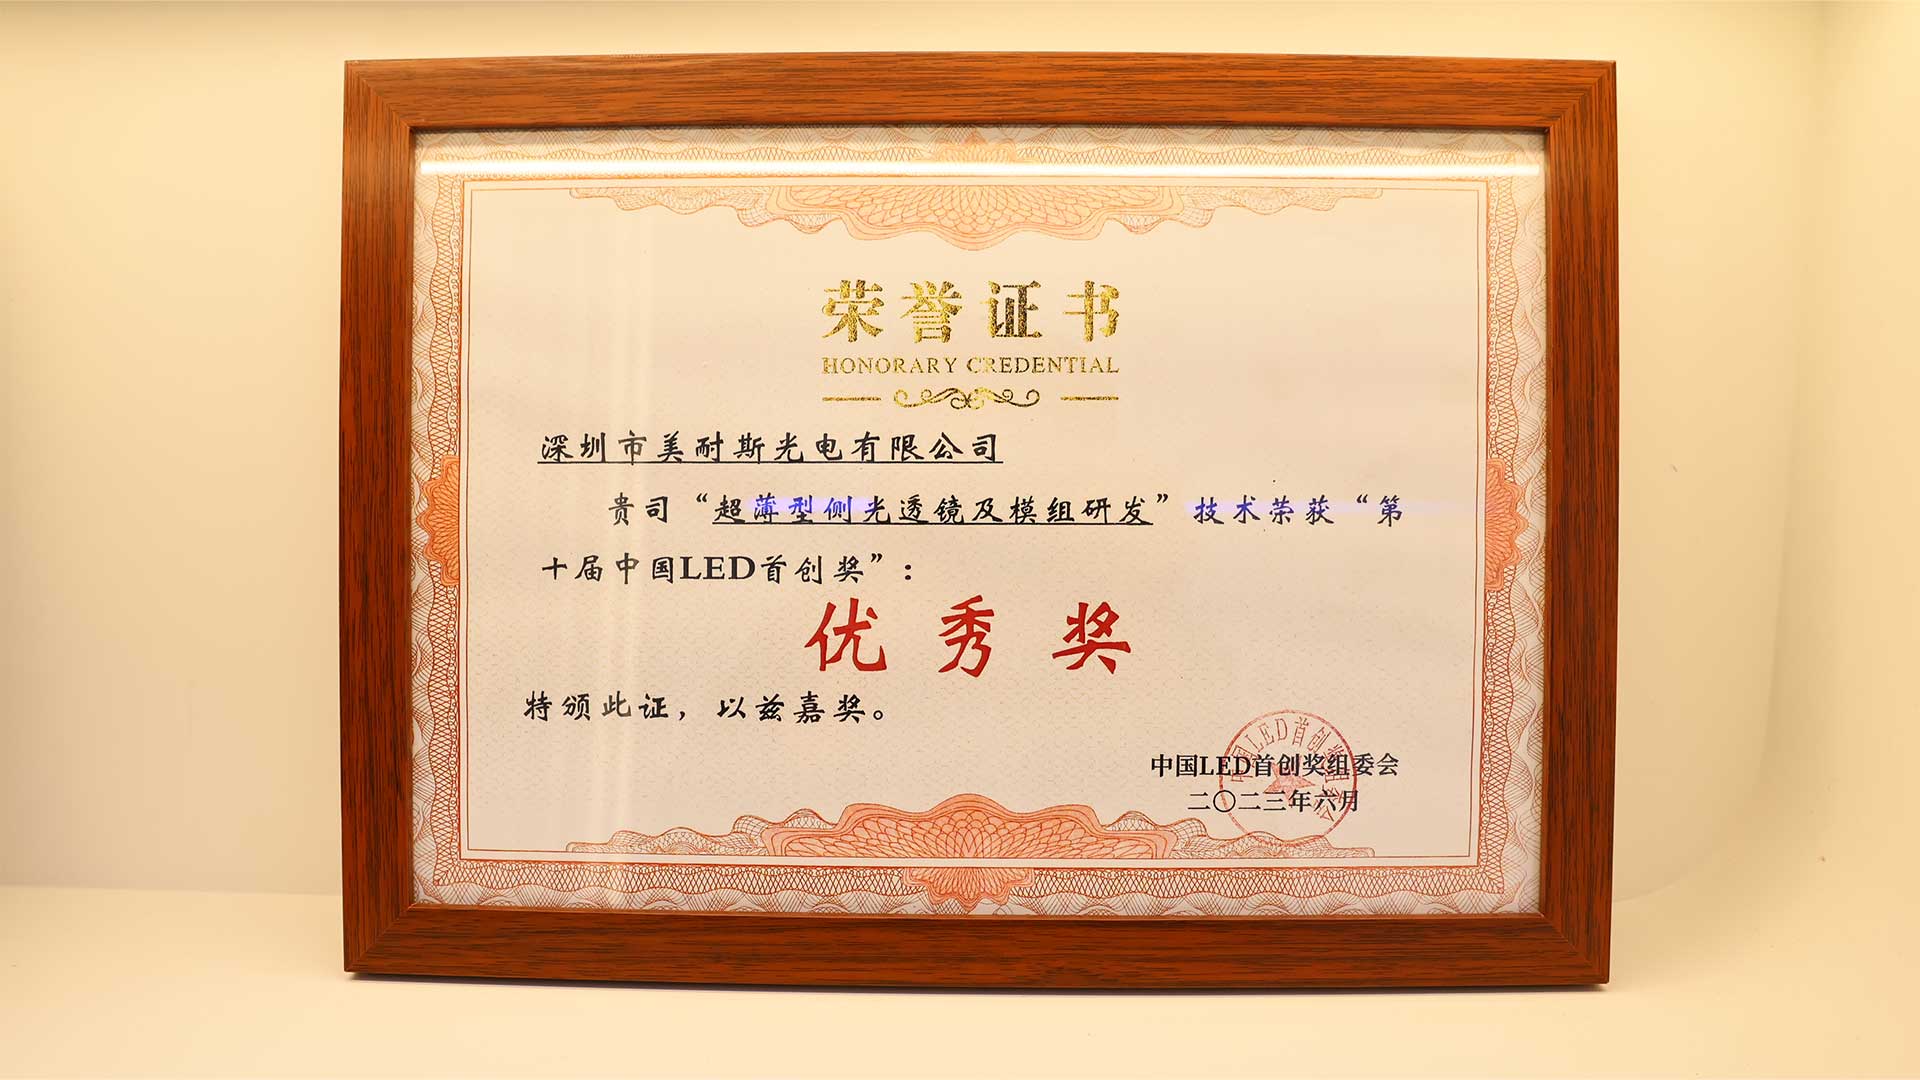 荣誉证书
HONORARY CREDENTIAL
深圳市美耐斯光电有限公司
贵司“超薄型侧光透镜及模组研发”技术荣获“第
十届中国LED首创奖”：
优秀奖
特颁此证，以兹嘉奖。
中国LED首创奖组委会
二〇二三年六月
中国LED首创奖组委会